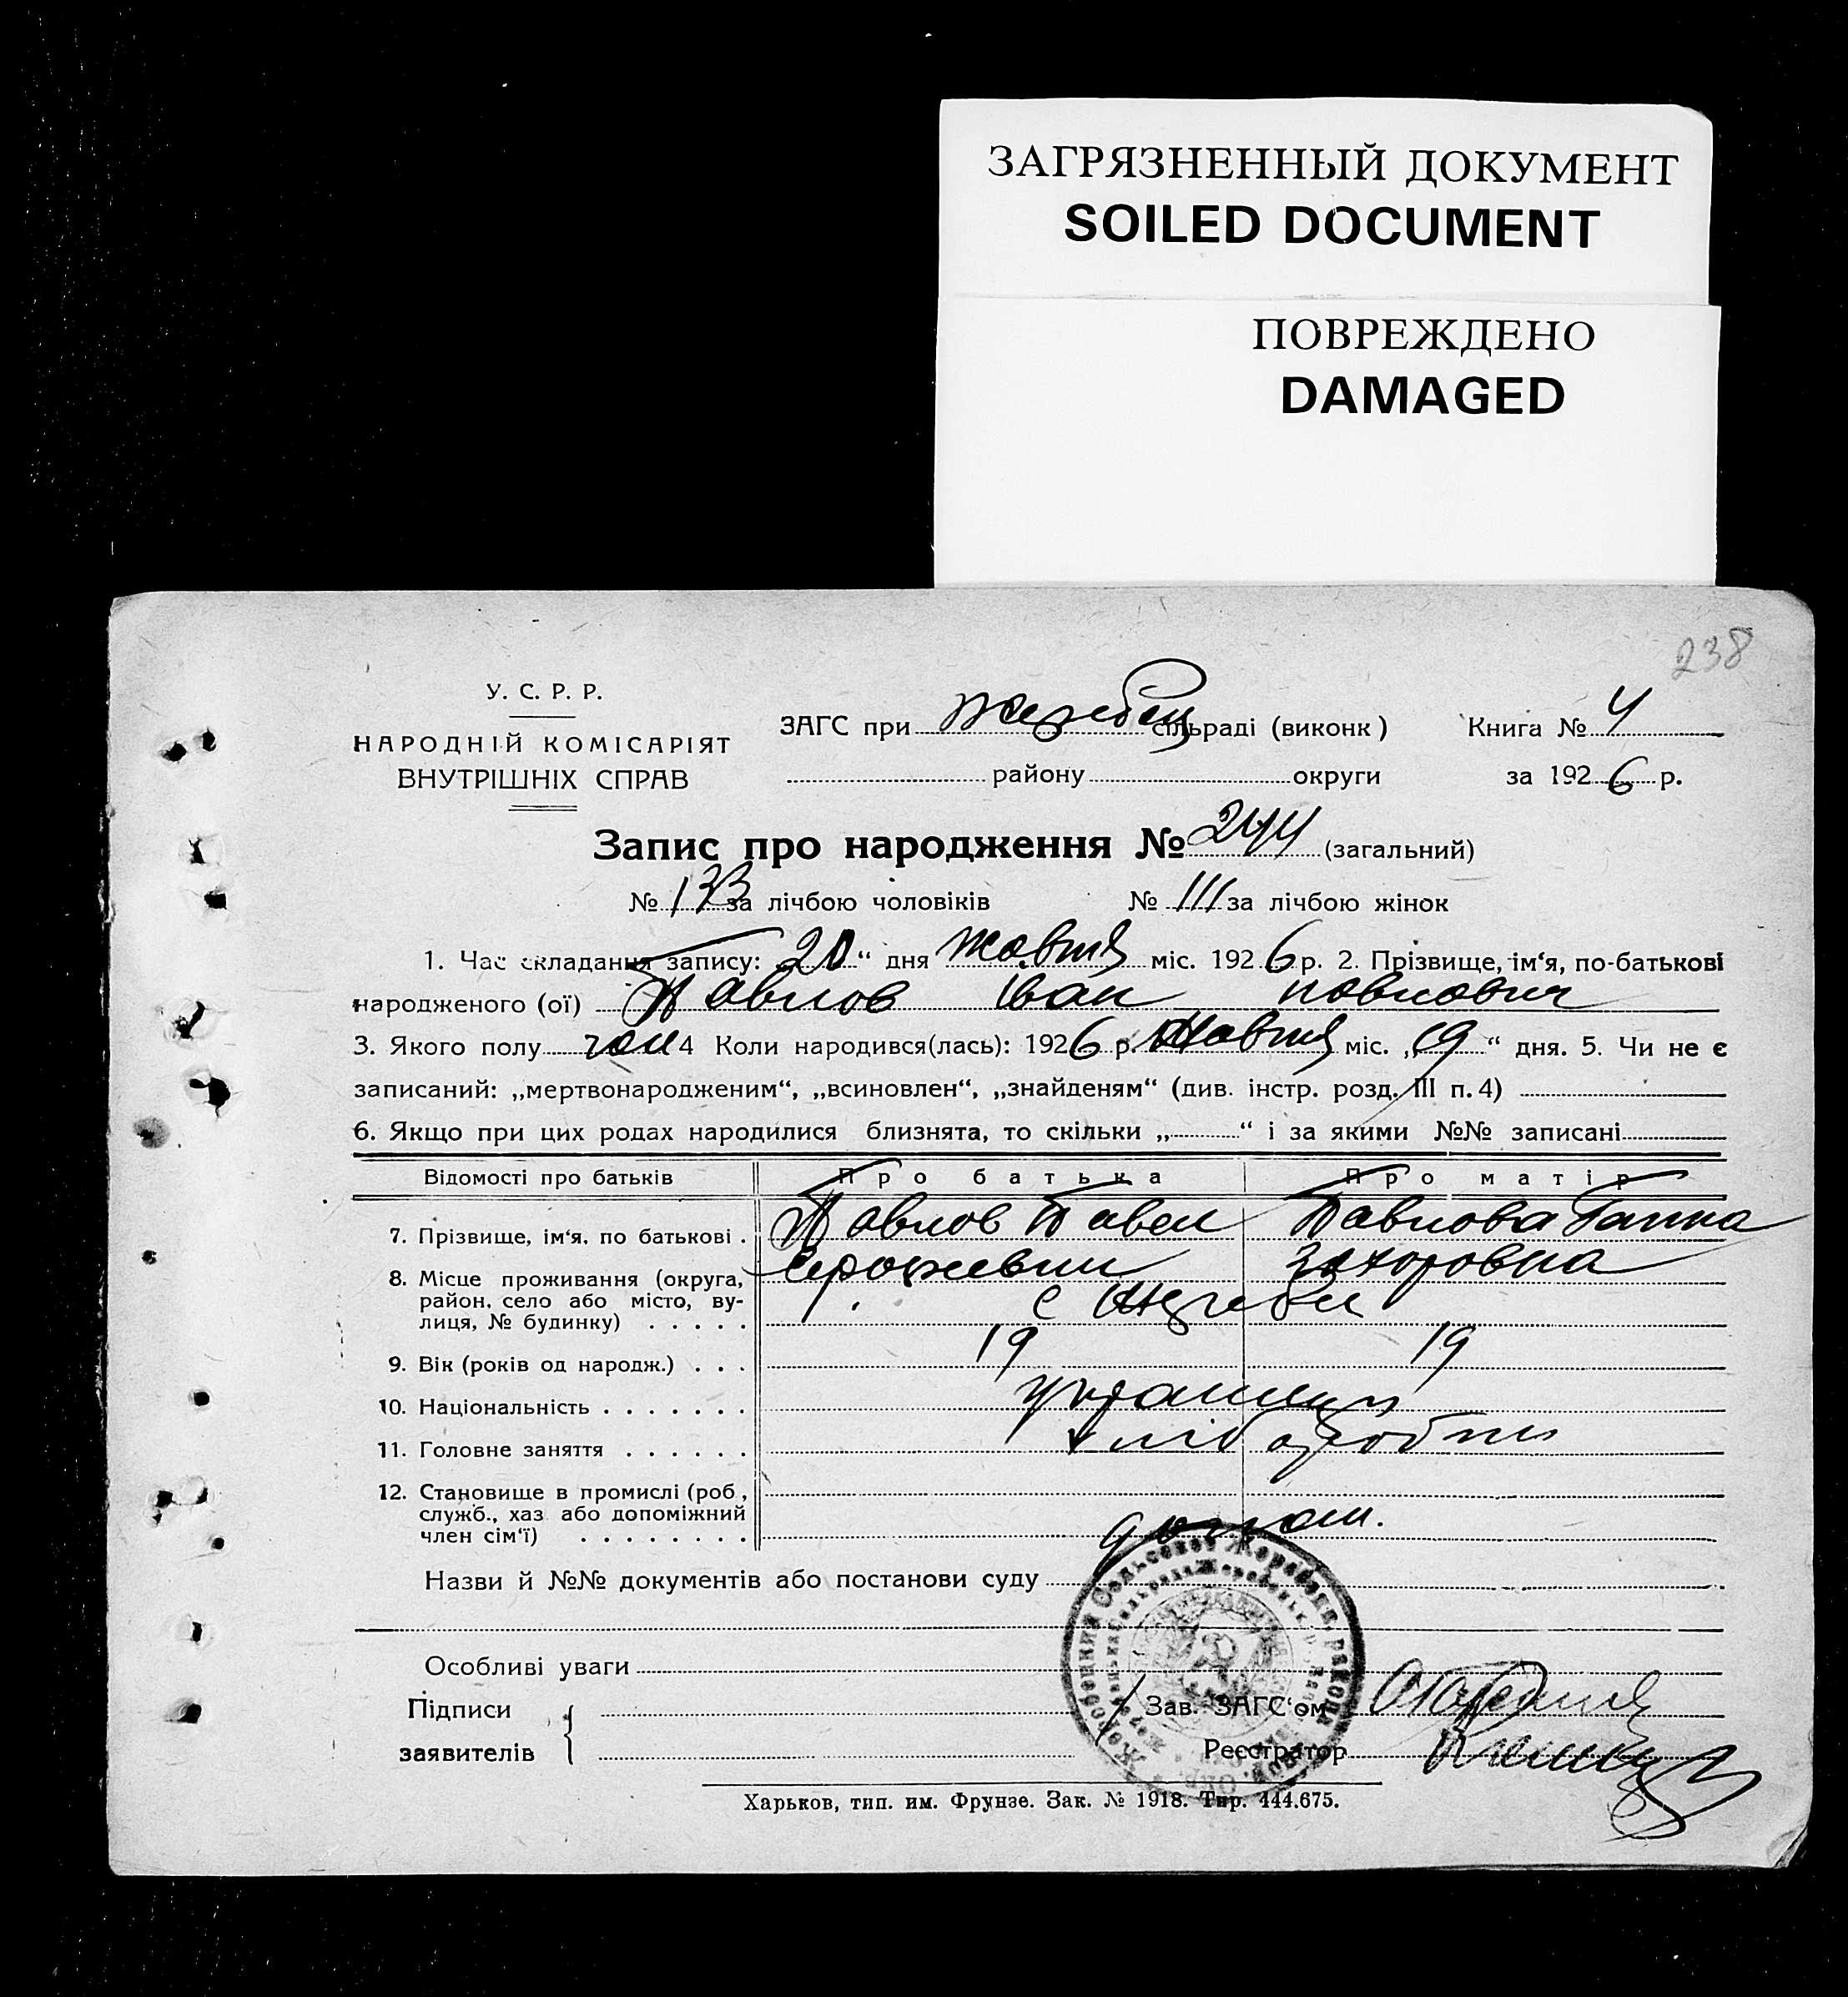 ЗАГРЯЗНЕННЫЙ ДОКУМЕНТ
SOILED DOCUMENT
ПОВРЕЖДЕНО
DAMAGED
238
У. С. Р. Р.
НАРОДНІЙ КОМІСАРІЯТ
ВНУТРІШНІХ СПРАВ
ЗАГС при Жеребец сільраді (виконк)
району округи
Книга № 4
за 1926 р.
Запис про народження № 244 (загальний)
№ 133 за лічбою чоловіків № 111 за лічбою жінок
1. Час складання запису: 20“ дня Жовтня міс. 1926 р. 2. Прізвище, ім‘я, по-батькові
народженого (ої) Павлов Іван Павлович
3. Якого полу чол 4 Коли народився(лась): 1926 р. Жовтня міс. „19“ дня. 5. Чи не є
записаний: „мертвонародженим“, „всиновлен“, „знайденям“ (див. інстр. розд. III п. 4)
6. Якщо при цих родах народилися близнята, то скільки „ “ і за якими №№ записані
Відомості про батьків Про батька Про матір
7. Прізвище, ім‘я, по батькові . Павлов Павел Павлова Ганна
Захоровна
8. Місце проживання (округа,
район, село або місто, ву-
лиця, № будинку) . . . . . с Жеребец
9. Вік (років од народж.) . . . 19 19
10. Національність . . . . . . . украинцы
11. Головне заняття . . . . . . хлібороби
12. Становище в промислі (роб,
служб., хаз або допоміжний
член сім‘ї) . . . . . . . .
Назви й №№ документів або постанови суду
Особливі уваги
Підписи
заявителів
Зав. ЗАГС‘ом
Реєстратор
Харьков, тип. им. Фрунзе. Зак. № 1918. Тир. 444.675.